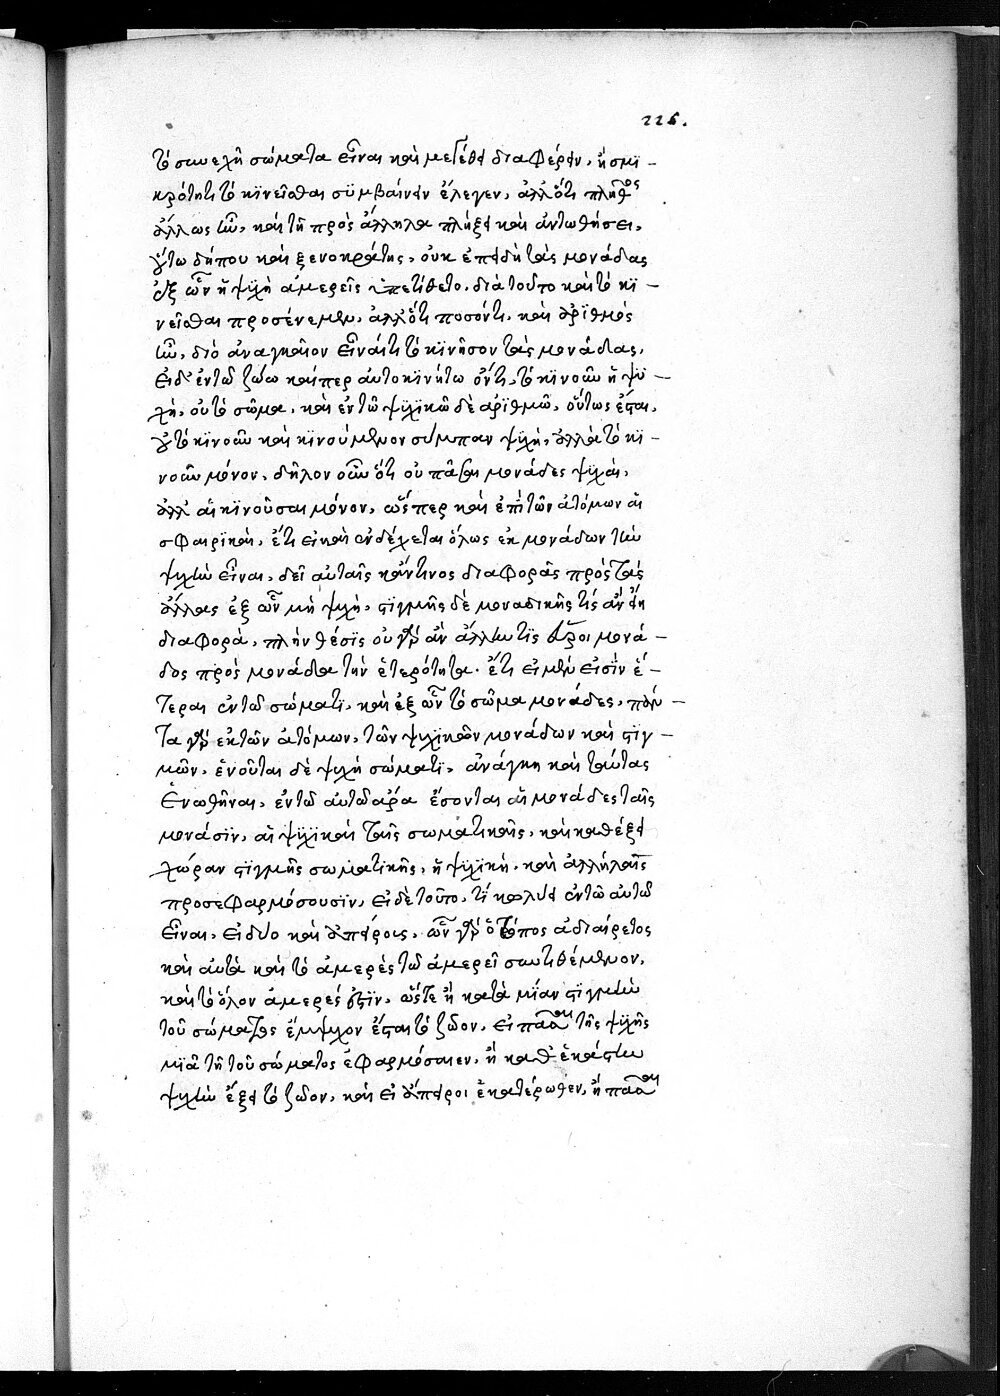 226.
τὸ συνεχῆ σώματα εἶναι καὶ μεγέθει διαφέρειν, ἢ σμϊ-
κρότητι τὸ κϊνεῖσθαι σϋμβαίνειν ἔλεγεν, ἀλλ' ὅτι πλῆθος
ἄλλως ἦν, καὶ τῆ πρὸς ἄλληλα πλήξει καὶ ἀντωθήσει,
οὕτω δήπου καὶ ξενοκράτης, οὐκ ἐπειδὴ τὰς μονάδας
ἐξ ὧν ἡ ψϋχὴ ἀμερεῖς ὑπετίθετο, διὰ τοῦτο καὶ τὸ κϊ-
νεῖσθαι προσένεμεν, ἀλλ' ὅτι ποσόν τι, καὶ ἀρϊθμὸς
ἦν, διὸ ἀναγκαῖον εἶναί τι τὸ κϊνῆσον τὰς μονάδας,
εἰ δ' ἐν τῶ ζώω καίπερ αὐτοκϊνήτω ὄντι, τὸ κϊνοῦν ἡ ψϋ-
χὴ, οὐ τὸ σῶμα, καὶ ἐν τῶ ψϋχϊκῶ δὲ ἀρϊθμῶ, οὕτως ἔσται,
οὐ τὸ κϊνοῦν καὶ κϊνούμενον σύμπαν ψϋχὴ, ἀλλὰ τὸ κϊ-
νοῦν μόνον, δῆλον οὖν ὅτι οὐ πᾶσαι μονάδες ψϋχαὶ,
ἀλλ' αἱ κϊνοῦσαι μόνον, ὥσπερ καὶ ἐπὶ τῶν ἀτόμων αἱ
σφαιρϊκαὶ, ἔτι εἰ καὶ ἐνδέχεται ὅλως ἐκ μονάδων τὴν
ψυχὴν εἶναι, δεῖ αὐταῖς κἄν τινος διαφορᾶς πρὸς τὰς
ἄλλας ἐξ ὧν μὴ ψυχὴ, στϊγμῆς δὲ μοναδικῆς τίς ἂν εἴη
διαφορὰ, πλὴν θέσϊς οὐ γὰρ ἂν ἄλλην τϊς εὕροι μονά-
δος πρὸς μονάδα τὴν ἑτερότητα. ἔτι εἰ μὲν εἰσῒν ἕ-
τεραι ἐν τῶ σώματϊ, καὶ ἐξ ὧν τὸ σῶμα μονάδες, πάν-
τα γὰρ ἐκ τῶν ἀτόμων, τῶν ψϋχϊκῶν μονάδων καὶ στϊγ-
μῶν, ἑνοῦται δὲ ψυχὴ σώματϊ, ἀνάγκη καὶ ταύτας
ἑνωθῆναι, ἐν τῶ αὐτῶ ἄρα ἔσονται αἱ μονάδες ταῖς
μονάσϊν, αἱ ψϋχϊκαὶ ταῖς σωματικαῖς, καὶ καθέξει
χώραν στϊγμῆς σωματϊκῆς, ἡ ψϋχϊκὴ, καὶ ἀλλήλαις
προσεφαρμόσουσϊν, εἰ δὲ τοῦτο, τί κωλύει ἐν τῶ αὐτῶ
εἶναι, εἰ δύο καὶ ἀπείροις, ὧν γὰρ ὁ τόπος ἀδιαίρετος
καὶ αὐτὰ καὶ τὸ ἀμερὲς τῶ ἀμερεῖ συντιθέμενον,
καὶ τὸ ὅλον ἀμερές ἐστϊν, ὥστε ἢ κατὰ μΐαν στϊγμὴν
τοῦ σώματος ἔμψυχον ἔσται τὸ ζῶον, εἰ πᾶσαι τῆς ψυχῆς
μϊᾶ τῆ τοῦ σώματος ἐφαρμόσαιεν, ἢ καθ' ἑκάστην
ψυχὴν ἕξει τὸ ζῶον, καὶ εἰ ἄπειροι ἑκατέρωθεν, ἢ πᾶσαι